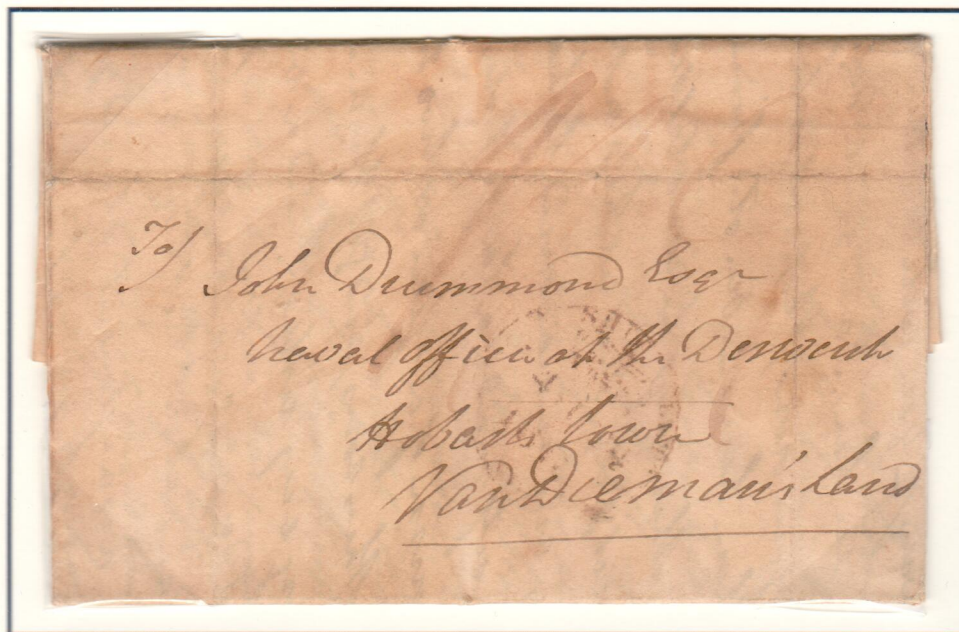 To/ John Drummond Esqr
Naval officer at the Derwent
Hobarts Town
Van Diemans Land